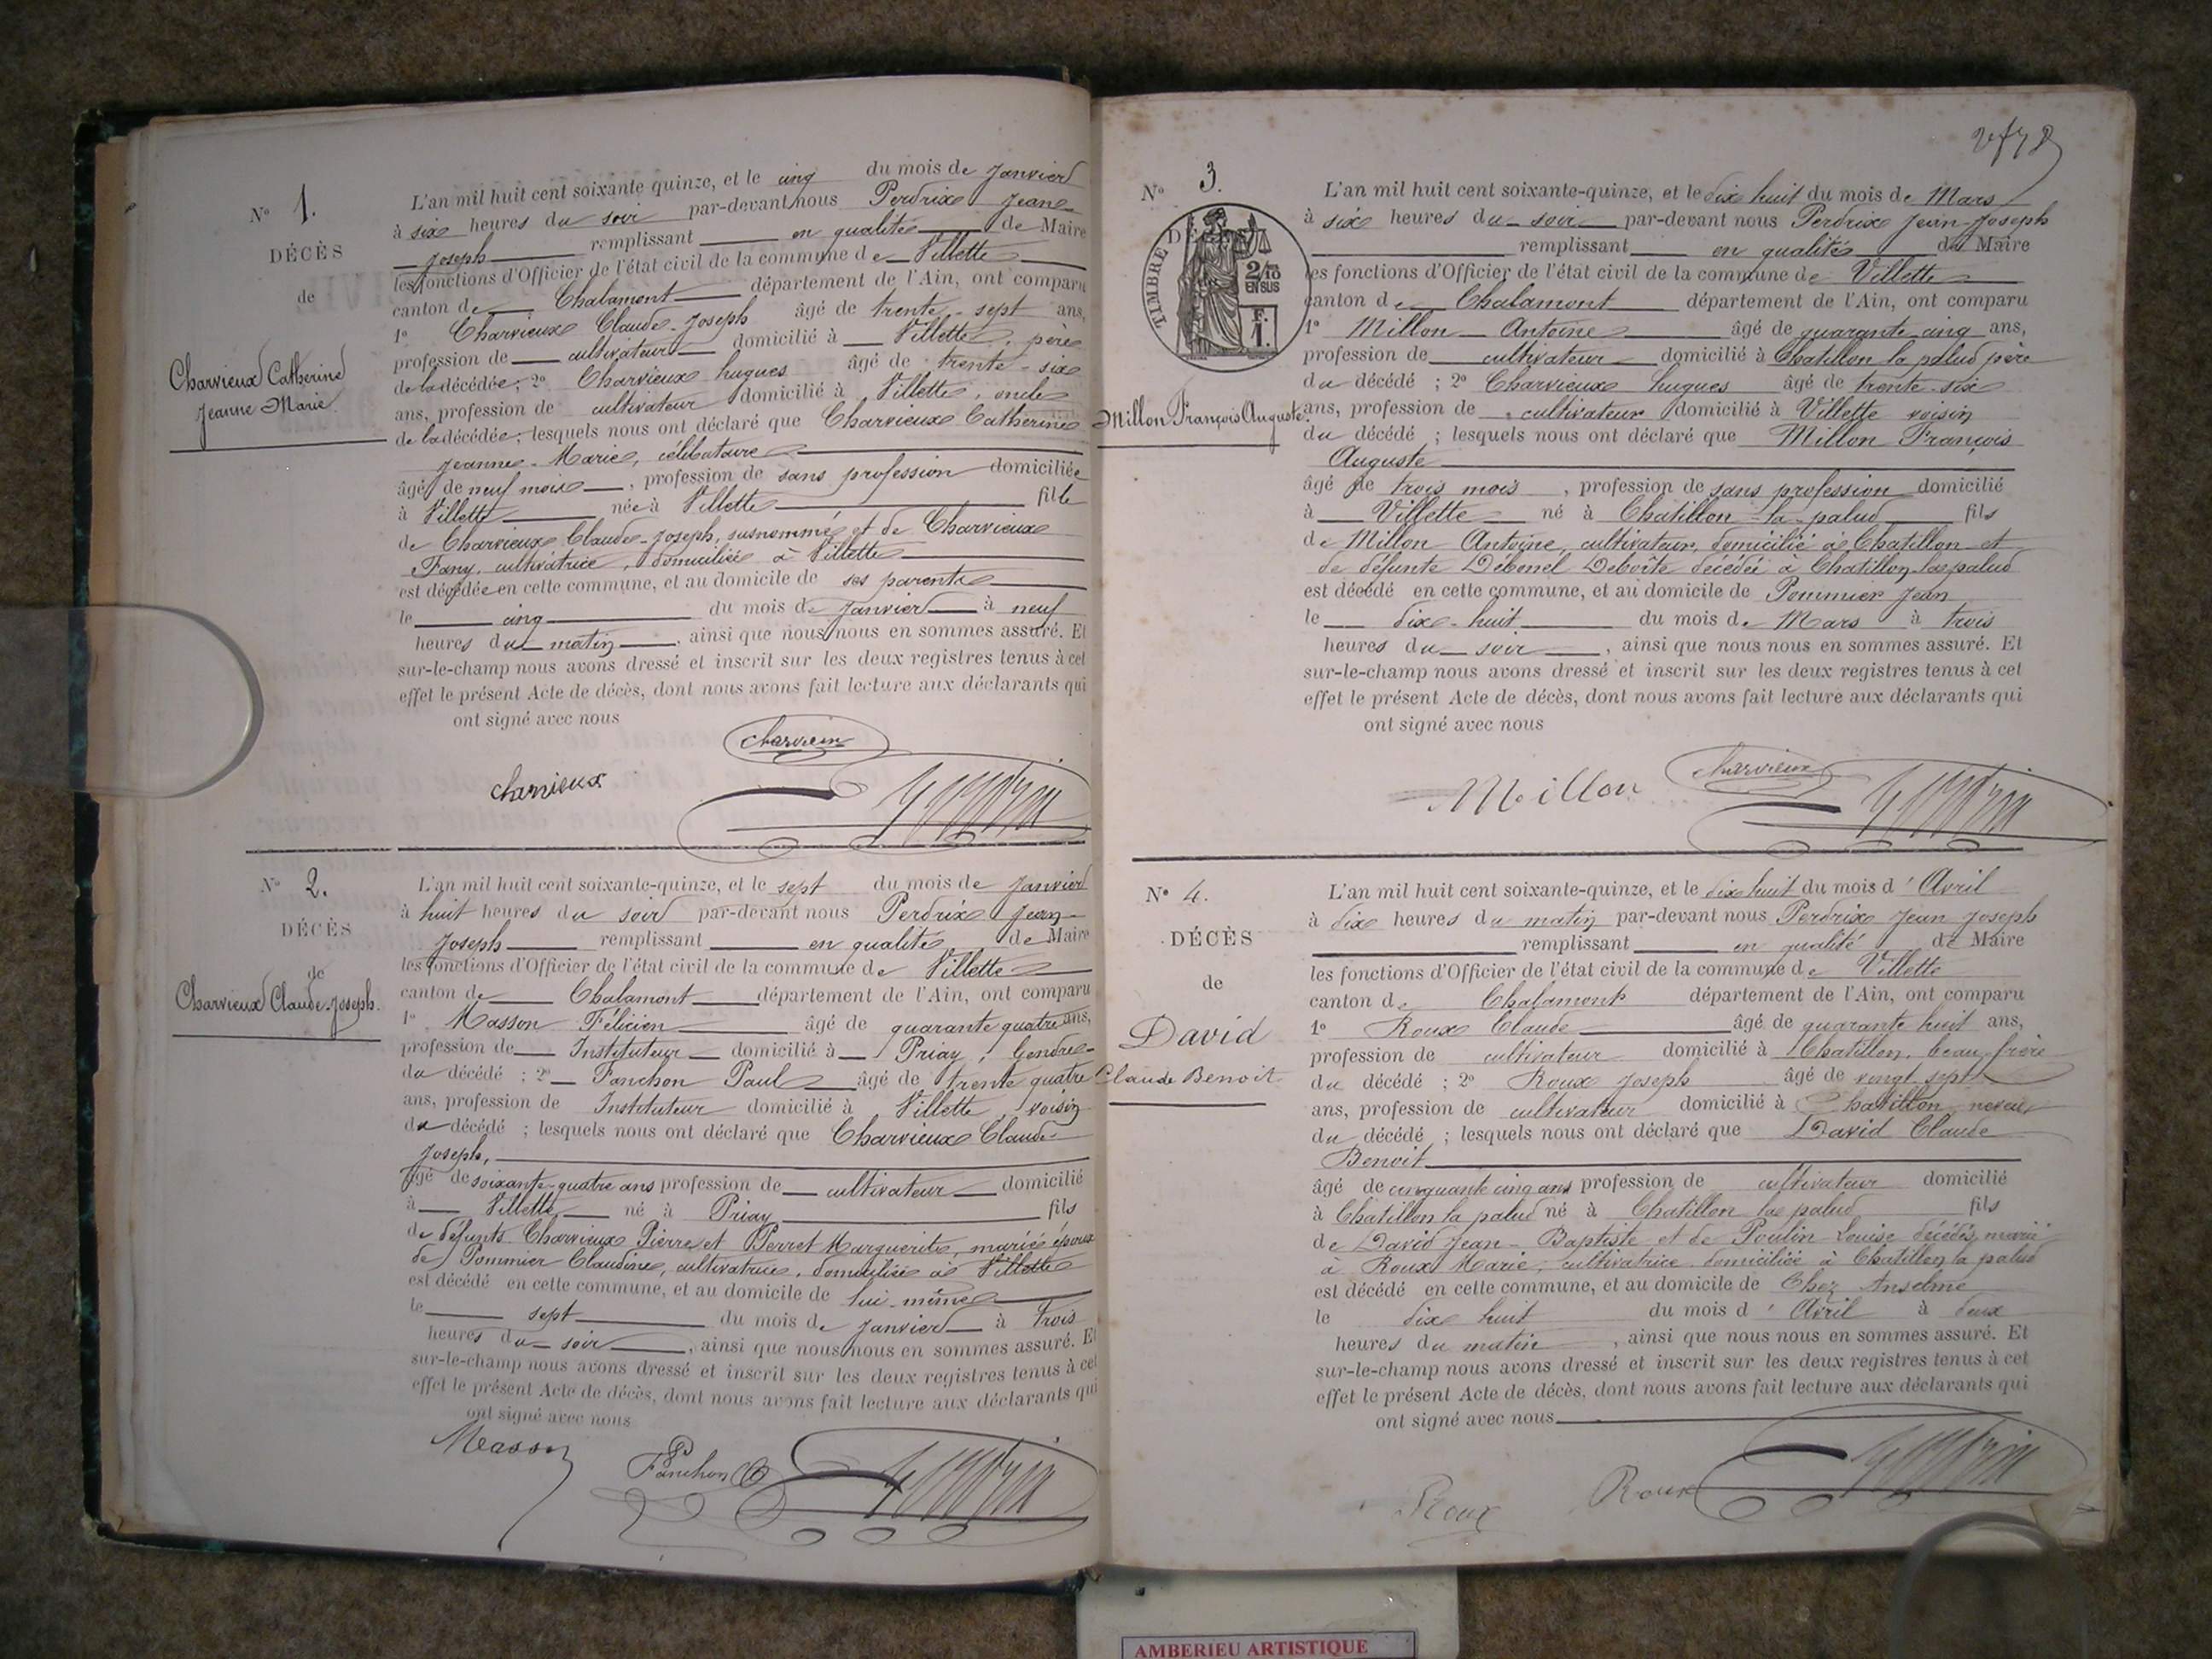 N° 1.
DÉCÈS
de
Charvieux Catherine
Jeanne Marie
L'an mil huit cent soixante quinze, et le cinq du mois de Janvier
à six heures du soir par-devant nous Perdrix Jean-
Joseph remplissant en qualité de Maire
les fonctions d'Officier de l'état civil de la commune de Villette
canton de Chalamont département de l'Ain, ont comparu
1° Charvieux Claude-Joseph âgé de trente-sept ans,
profession de cultivateur domicilié à Villette, père
de la décédée; 2° Charvieux hugues âgé de trente-six
ans, profession de cultivateur domicilié à Villette, oncle
de la décédée; lesquels nous ont déclaré que Charvieux Catherine
Jeanne-Marie, célibataire
âgé de neuf mois, profession de sans profession domiciliée
à Villette née à Villette fille
de Charvieux Claude-Joseph, susnommé et de Charvieux
Fany, cultivatrice, domiciliée à Villette
est décédée en cette commune, et au domicile de ses parents
le cinq du mois de Janvier à neuf
heures du matin, ainsi que nous nous en sommes assuré. Et
sur-le-champ nous avons dressé et inscrit sur les deux registres tenus à cet
effet le présent Acte de décès, dont nous avons fait lecture aux déclarants qui
ont signé avec nous
charvieux
charvieux
N° 2.
DÉCÈS
de
Charvieux Claude-Joseph.
L'an mil huit cent soixante-quinze, et le sept du mois de Janvier
à huit heures du soir par-devant nous Perdrix Jean-
Joseph remplissant en qualité de Maire
les fonctions d'Officier de l'état civil de la commune de Villette
canton de Chalamont département de l'Ain, ont comparu
1° Masson Félicien âgé de quarante quatre ans,
profession de Instituteur domicilié à Priay, Gendre
du décédé; 2° Fanchon Paul âgé de trente quatre
ans, profession de Instituteur domicilié à Villette, voisin
du décédé; lesquels nous ont déclaré que Charvieux Claude
Joseph,
âgé de soixante-quatre ans profession de cultivateur domicilié
à Villette né à Priay fils
de défunts Charvieux Pierre et Perret Marguerite, mariée époux
de Pommier Claudine, cultivatrice, domiciliée à Villette
est décédé en cette commune, et au domicile de lui-même
le sept du mois de Janvier à trois
heures du soir, ainsi que nous nous en sommes assuré. Et
sur-le-champ nous avons dressé et inscrit sur les deux registres tenus à cet
effet le présent Acte de décès, dont nous avons fait lecture aux déclarants qui
ont signé avec nous
Masson
Fanchon
N° 3.
TIMBRE
2/10
EN SUS
F.
1.
Millon François Auguste.
L'an mil huit cent soixante-quinze, et le dix huit du mois de Mars
à six heures du soir par-devant nous Perdrix Jean-Joseph
remplissant en qualité de Maire
les fonctions d'Officier de l'état civil de la commune de Villette
canton de Chalamont département de l'Ain, ont comparu
1° Millon Antoine âgé de quarante-cinq ans,
profession de cultivateur domicilié à Chatillon la palud père
du décédé; 2° Charvieux hugues âgé de trente-six
ans, profession de cultivateur domicilié à Villette voisin
du décédé; lesquels nous ont déclaré que Millon François
Auguste
âgé de trois mois, profession de sans profession domicilié
à Villette né à Chatillon-la-palud fils
de Millon Antoine, cultivateur, domicilié à Chatillon et
de défunte décédée à Chatillon-la-palud
est décédé en cette commune, et au domicile de Pommier Jean
le dix-huit du mois de Mars à trois
heures du soir, ainsi que nous nous en sommes assuré. Et
sur-le-champ nous avons dressé et inscrit sur les deux registres tenus à cet
effet le présent Acte de décès, dont nous avons fait lecture aux déclarants qui
ont signé avec nous
Millon
charvieux
N° 4.
DÉCÈS
de
David
Claude Benoit.
L'an mil huit cent soixante-quinze, et le dix huit du mois d'Avril
à dix heures du matin par-devant nous Perdrix Jean Joseph
remplissant en qualité de Maire
les fonctions d'Officier de l'état civil de la commune de Villette
canton de Chalamont département de l'Ain, ont comparu
1° Roux Claude âgé de quarante huit ans,
profession de cultivateur domicilié à Chatillon, beau-frère
du décédé; 2° Roux Joseph âgé de vingt sept
ans, profession de cultivateur domicilié à Chatillon neveu
du décédé; lesquels nous ont déclaré que David Claude
Benoit
âgé de cinquante cinq ans profession de cultivateur domicilié
à Chatillon la palud né à Chatillon la palud fils
de David Jean-Baptiste et de Poulin Louise décédés, marié
à Roux Marie, cultivatrice domiciliée à Chatillon la palud
est décédé en cette commune, et au domicile de Chez Anselme
le dix huit du mois d'Avril à deux
heures du matin, ainsi que nous nous en sommes assuré. Et
sur-le-champ nous avons dressé et inscrit sur les deux registres tenus à cet
effet le présent Acte de décès, dont nous avons fait lecture aux déclarants qui
ont signé avec nous
Roux
Roux
AMBERIEU ARTISTIQUE